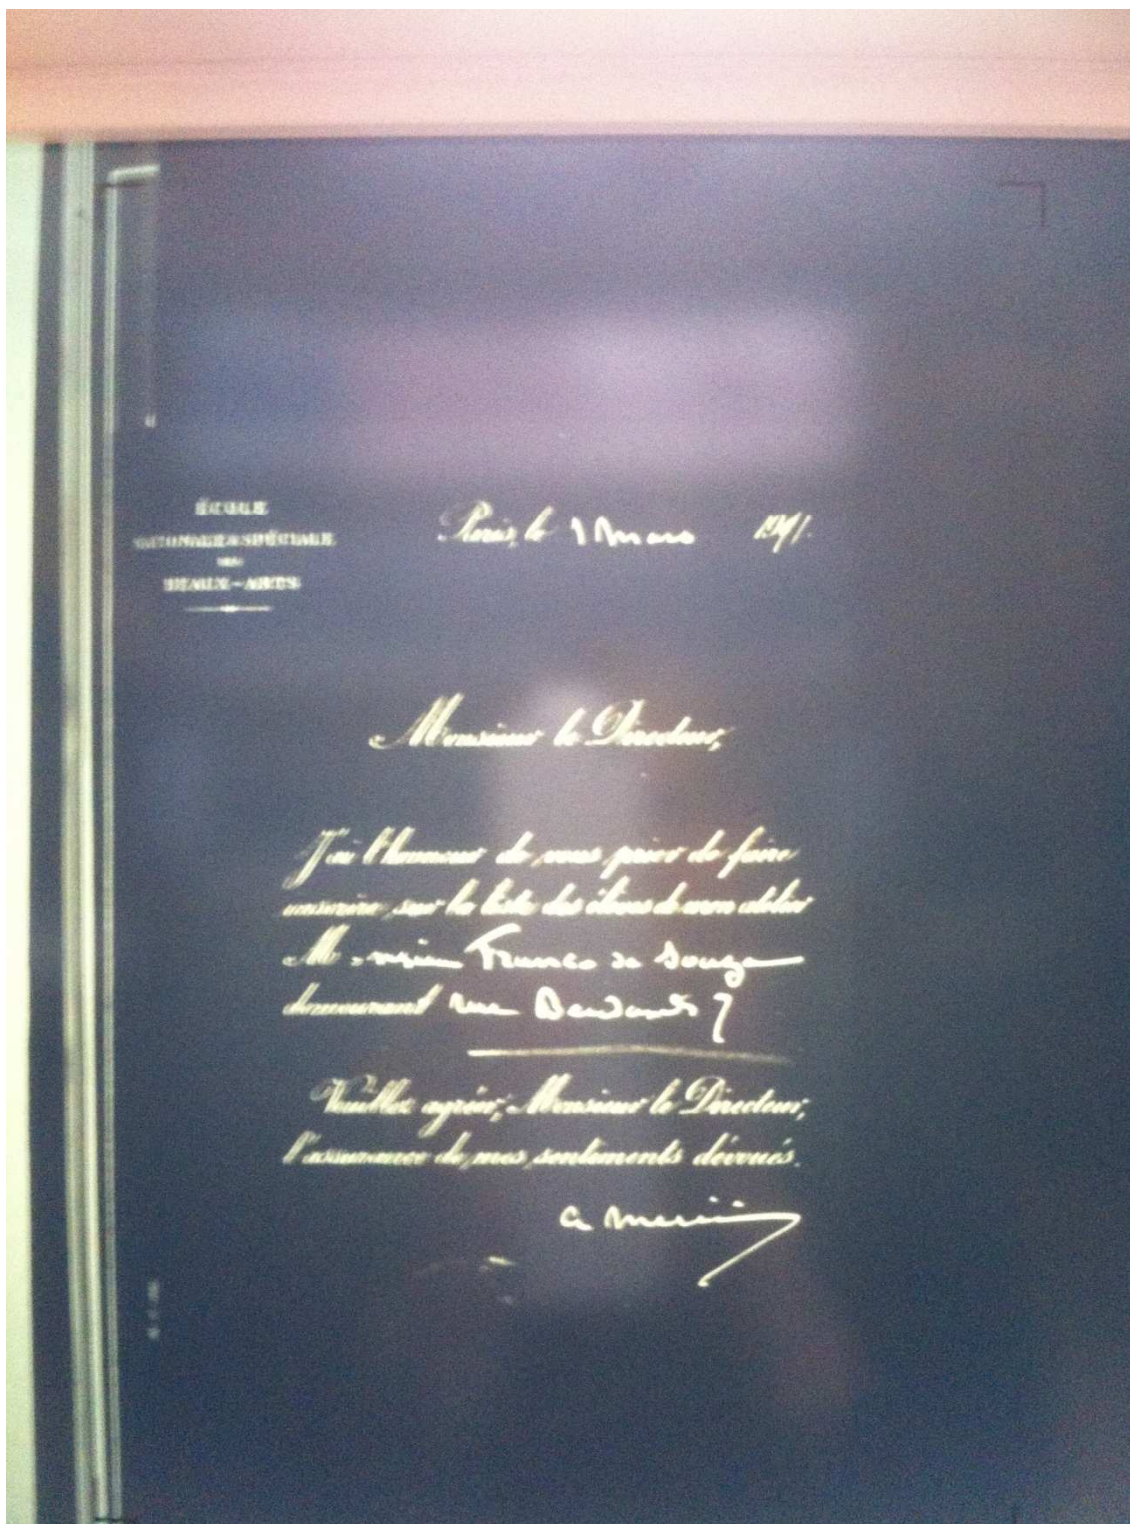 ÉCOLE
NATIONALE & SPÉCIALE
DES
BEAUX-ARTS
Paris, le 1 Mars 19
Monsieur le Directeur,
J'ai l'honneur de vous prier de faire
inscrire sur la liste des élèves de mon atelier
Monsieur Franco de Souza
demeurant rue 7
Veuillez agréer, Monsieur le Directeur,
l'assurance de mes sentiments dévoués.